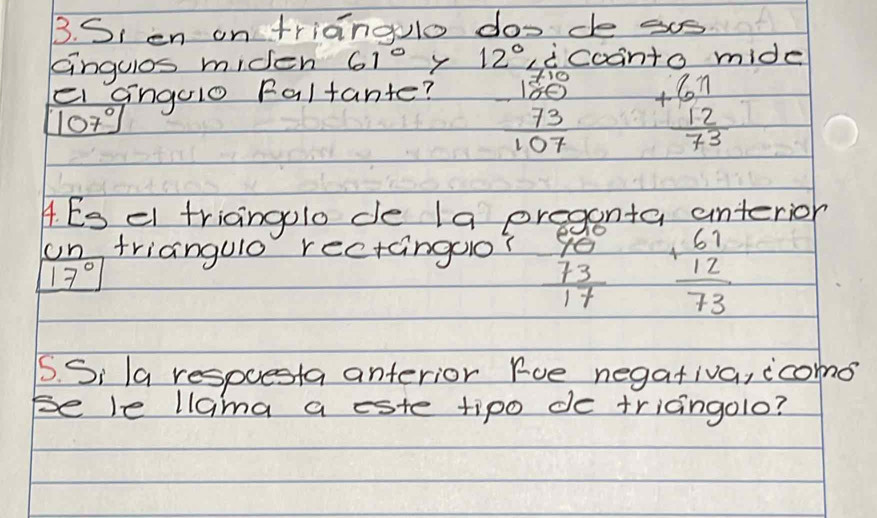 3. Si en un triángulo dos de sus
ángulos miden 61° y 12°, ¿cuánto mide
el ángulo faltante?
107°
710
- 180
73
107
+ 61
12
73
4. Es el triángulo de la pregunta anterior
un triángulo rectángulo?
17°
90
73
17
+ 61
12
73
5. Si la respuesta anterior fue negativa, ¿comó
se le llama a este tipo de triángulo?